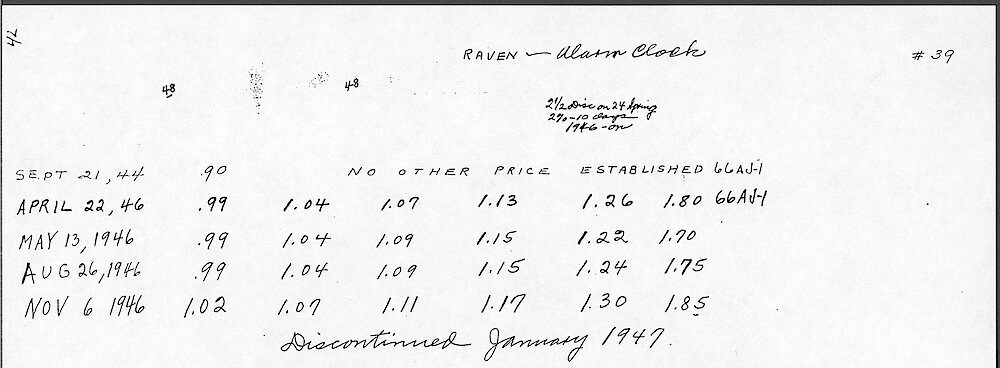 42
RAVEN — Alarm Clock # 39
48 48
2½ Disc on 24 Spring
2% - 10 days
1946 - on
SEPT 21, 44 .90 NO OTHER PRICE ESTABLISHED 66AJ-1
APRIL 22, 46 .99 1.04 1.07 1.13 1.26 1.80 66AJ-1
MAY 13, 1946 .99 1.04 1.09 1.15 1.22 1.70
AUG 26, 1946 .99 1.04 1.09 1.15 1.24 1.75
NOV 6 1946 1.02 1.07 1.11 1.17 1.30 1.85
Discontinued January 1947.